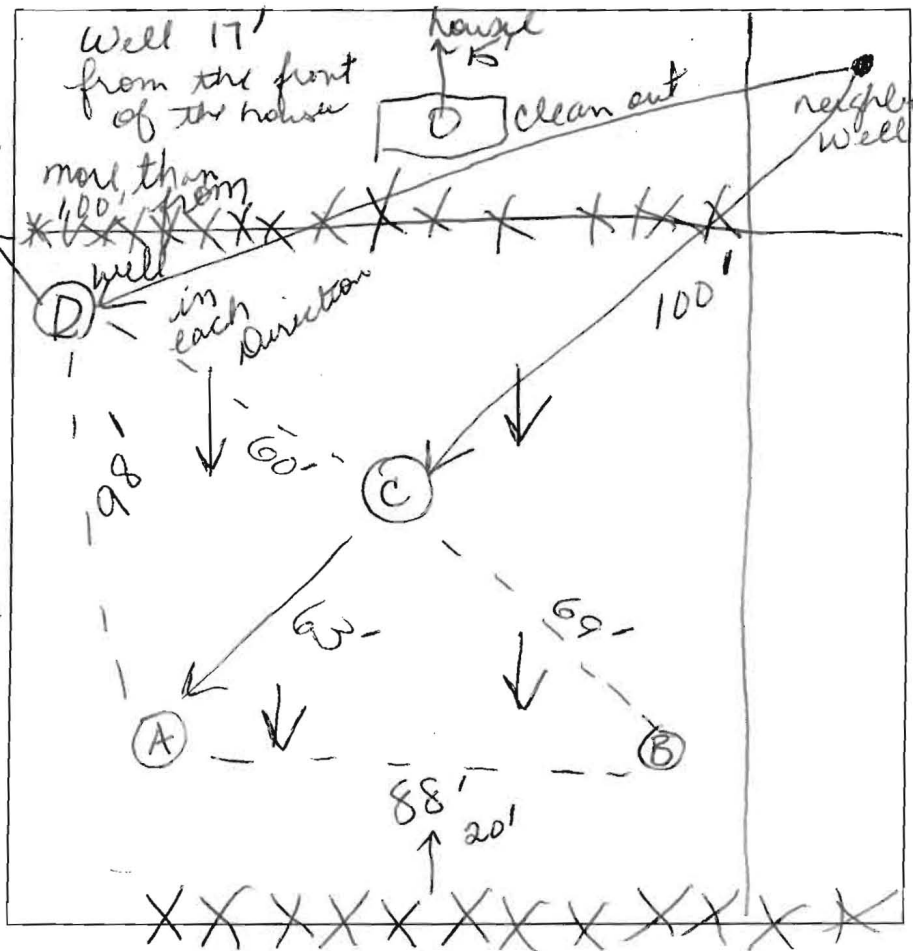 Well 17'
from the front
of the house
house
15'
clean out
neighb
well
more than
100' from
well
in
each
Direction
D
100'
98
60
C
63
69
A
B
88'
20'